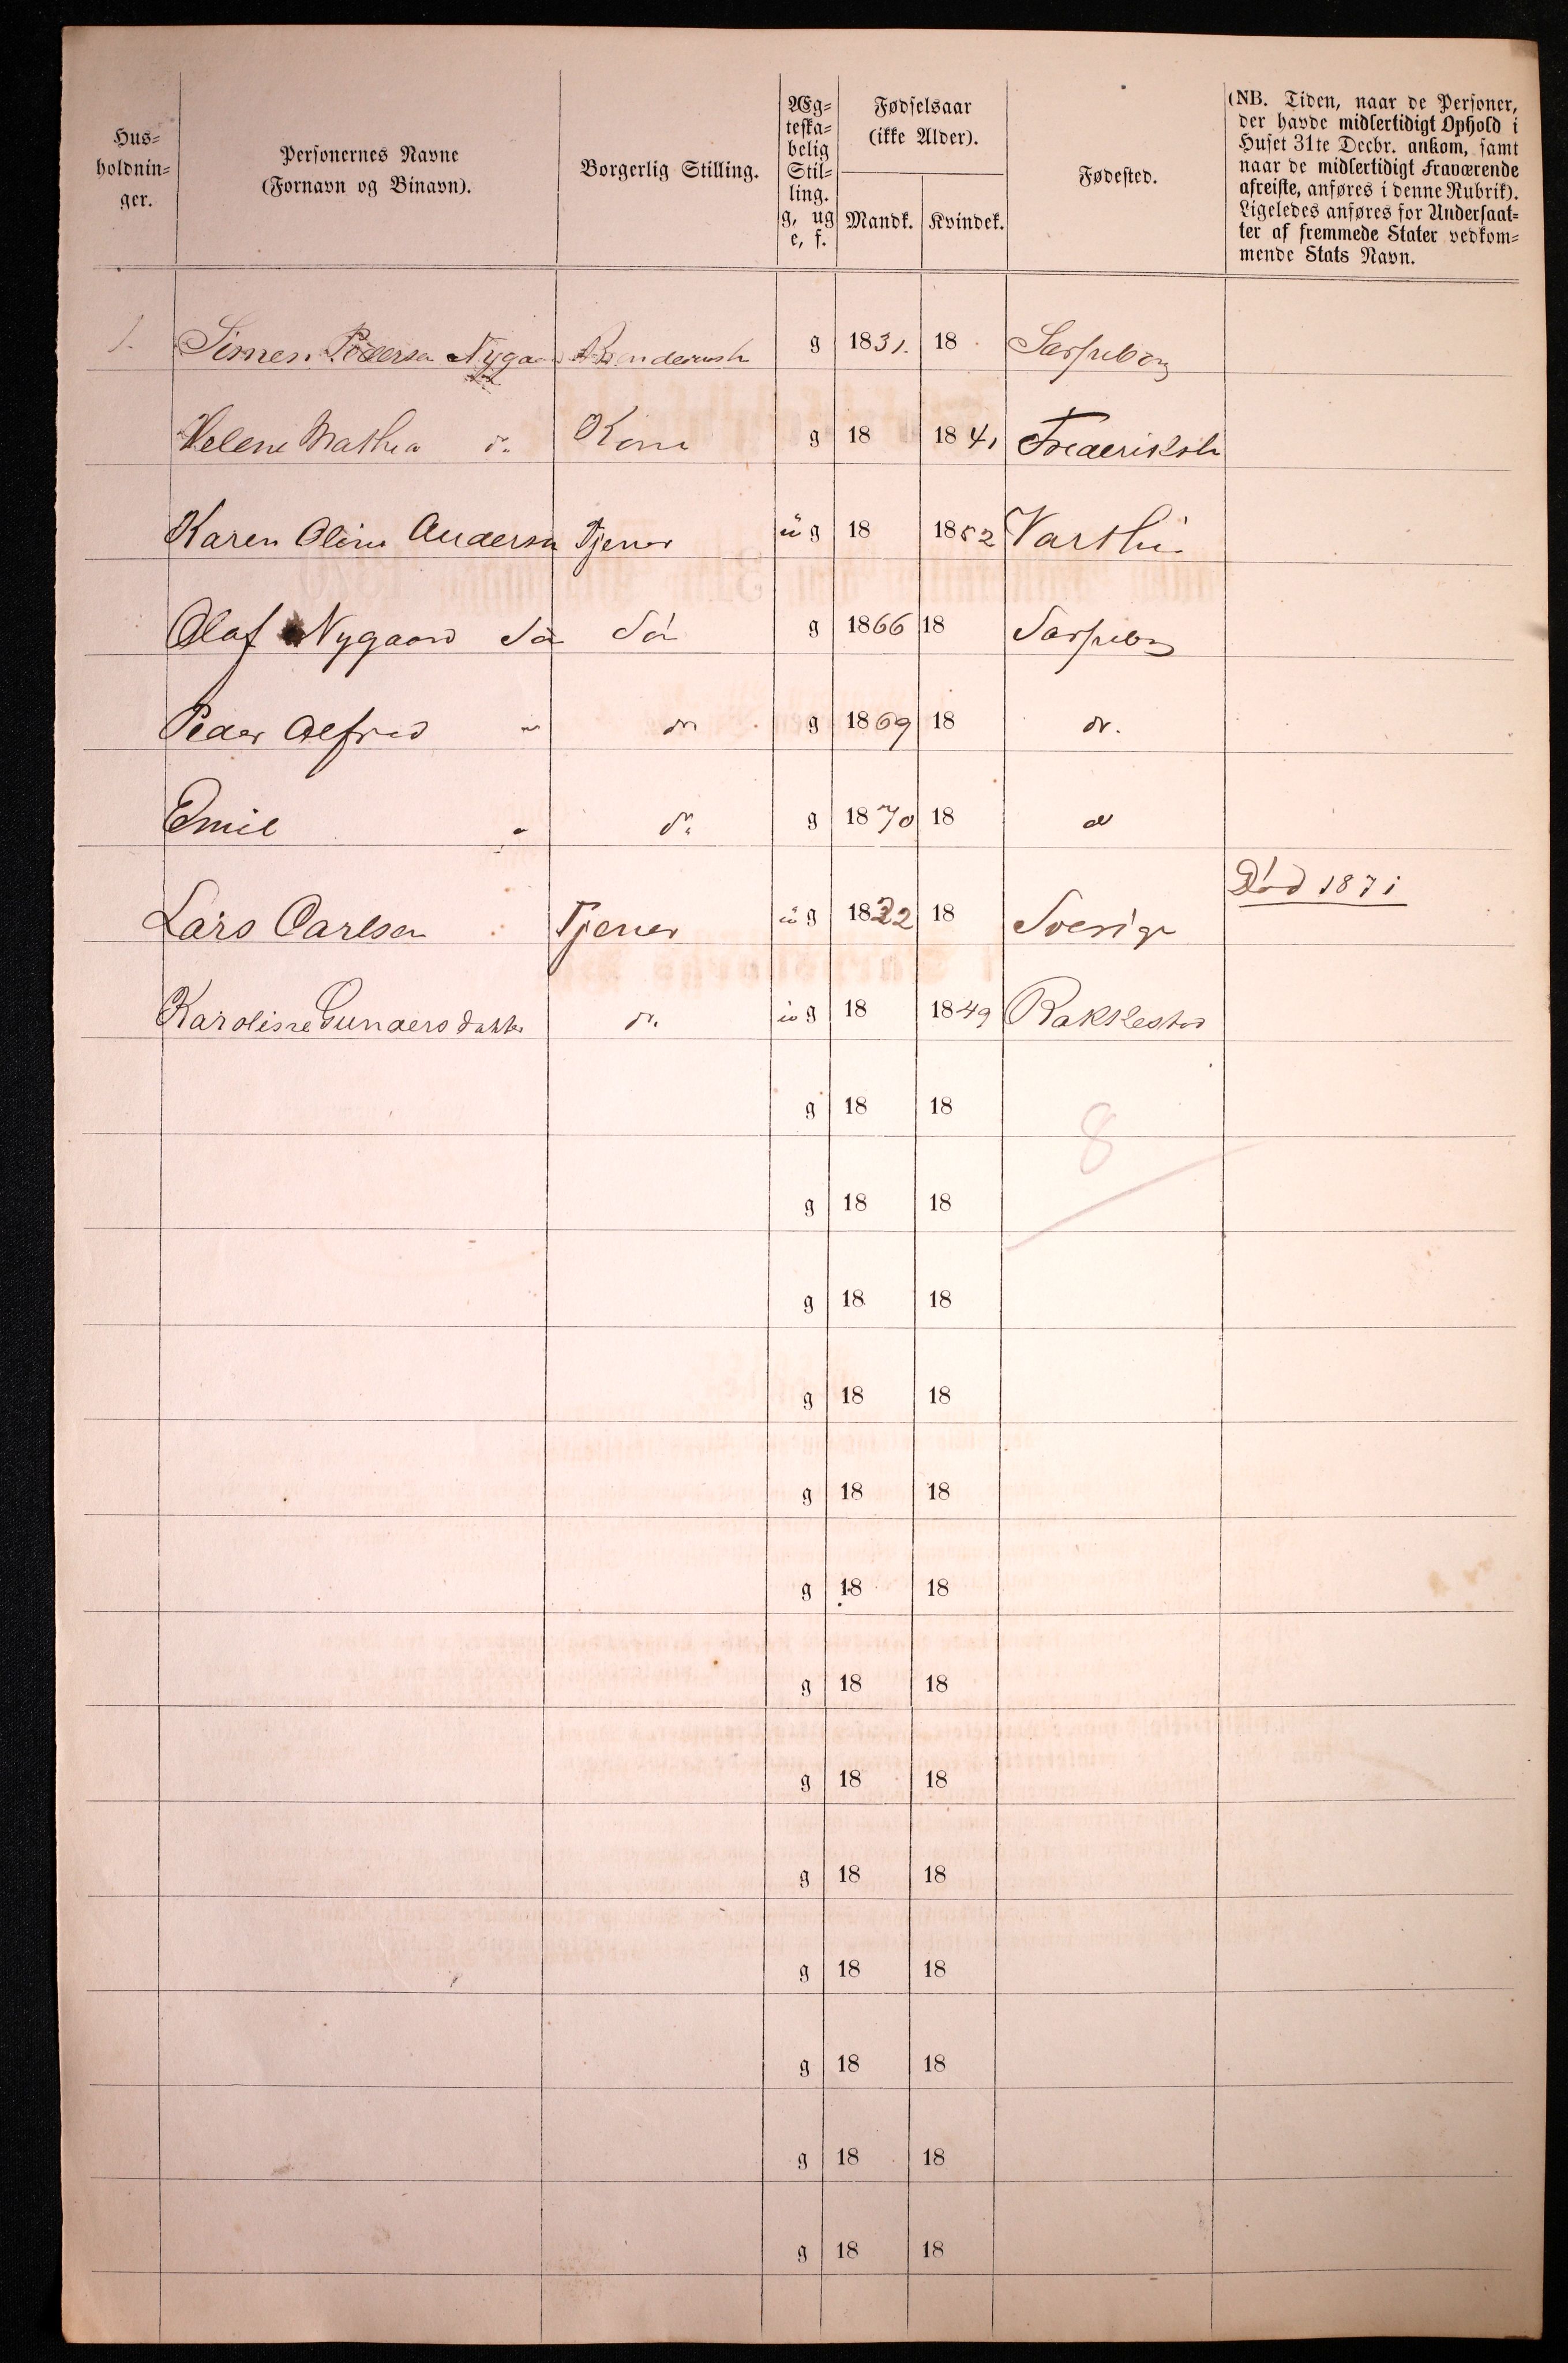 Hus-
holdnin-
ger.
Personernes Navne
(Fornavn og Binavn).
Borgerlig Stilling.
Æg-
teska-
belig
Stil-
ling.
g, ug
e, f.
Fødselsaar
(ikke Alder).
Mandk. Kvindek.
Fødested.
(NB. Tiden, naar de Personer,
der havde midlertidigt Ophold i
Huset 31te Decbr. ankom, samt
naar de midlertidigt Fraværende
afreiste, anføres i denne Rubrik).
Ligeledes anføres for Undersaat-
ter af fremmede Stater vedkom-
mende Stats Navn.
1. Simen Pedersen Nygaard g 1831. 18 Sarpsborg
Helene Mathea do. Kone g 18 1841 Frederiksh
Karen Oline Andersen Tjener ug 18 1852
Olaf Nygaard Søn g 1866 18 Sarpsborg
Peder Alfred " do g 1869 18 do.
Emil " do. g 1870 18 do
Død 1871
Lars Carlsen Tjener ug 1822 18 Sverige
Karoline Gundersdatter do. ug 18 1849 Rakkestad
g 18 18
8
g 18 18
g 18 18
g 18 18
g 18 18
g 18 18
g 18 18
g 18 18
g 18 18
g 18 18
g 18 18
g 18 18
g 18 18